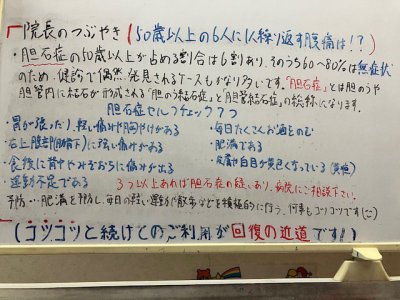 院長のつぶやき (50歳以上の6人に1人繰り返す腹痛は!?)
・胆石症の50歳以上が占める割合は6割あり、そのうち60~80%は無症状
のため、健診で偶然発見されるケースもかなり多いです。「胆石症」とは胆のうや
胆管内に結石が形成される「胆のう結石症」と「胆管結石症」の総称になります。
胆石症セルフチェック7つ
・胃が張ったり、軽い痛みや胸やけがある ・毎日たくさんお酒をのむ
・右上腹部(肋骨下)に強い痛みがある ・肥満である
・食後に背中やみぞおちに痛みが出る ・皮膚や白目が黄色くなっている(黄疸)
・運動不足である 3つ以上あれば胆石症の疑いあり、病院にご相談下さい。
予防…肥満を予防し、毎日の軽い運動や散歩などを積極的に行う、何事もコツコツです
(コツコツと続けてのご利用が回復の近道です!)